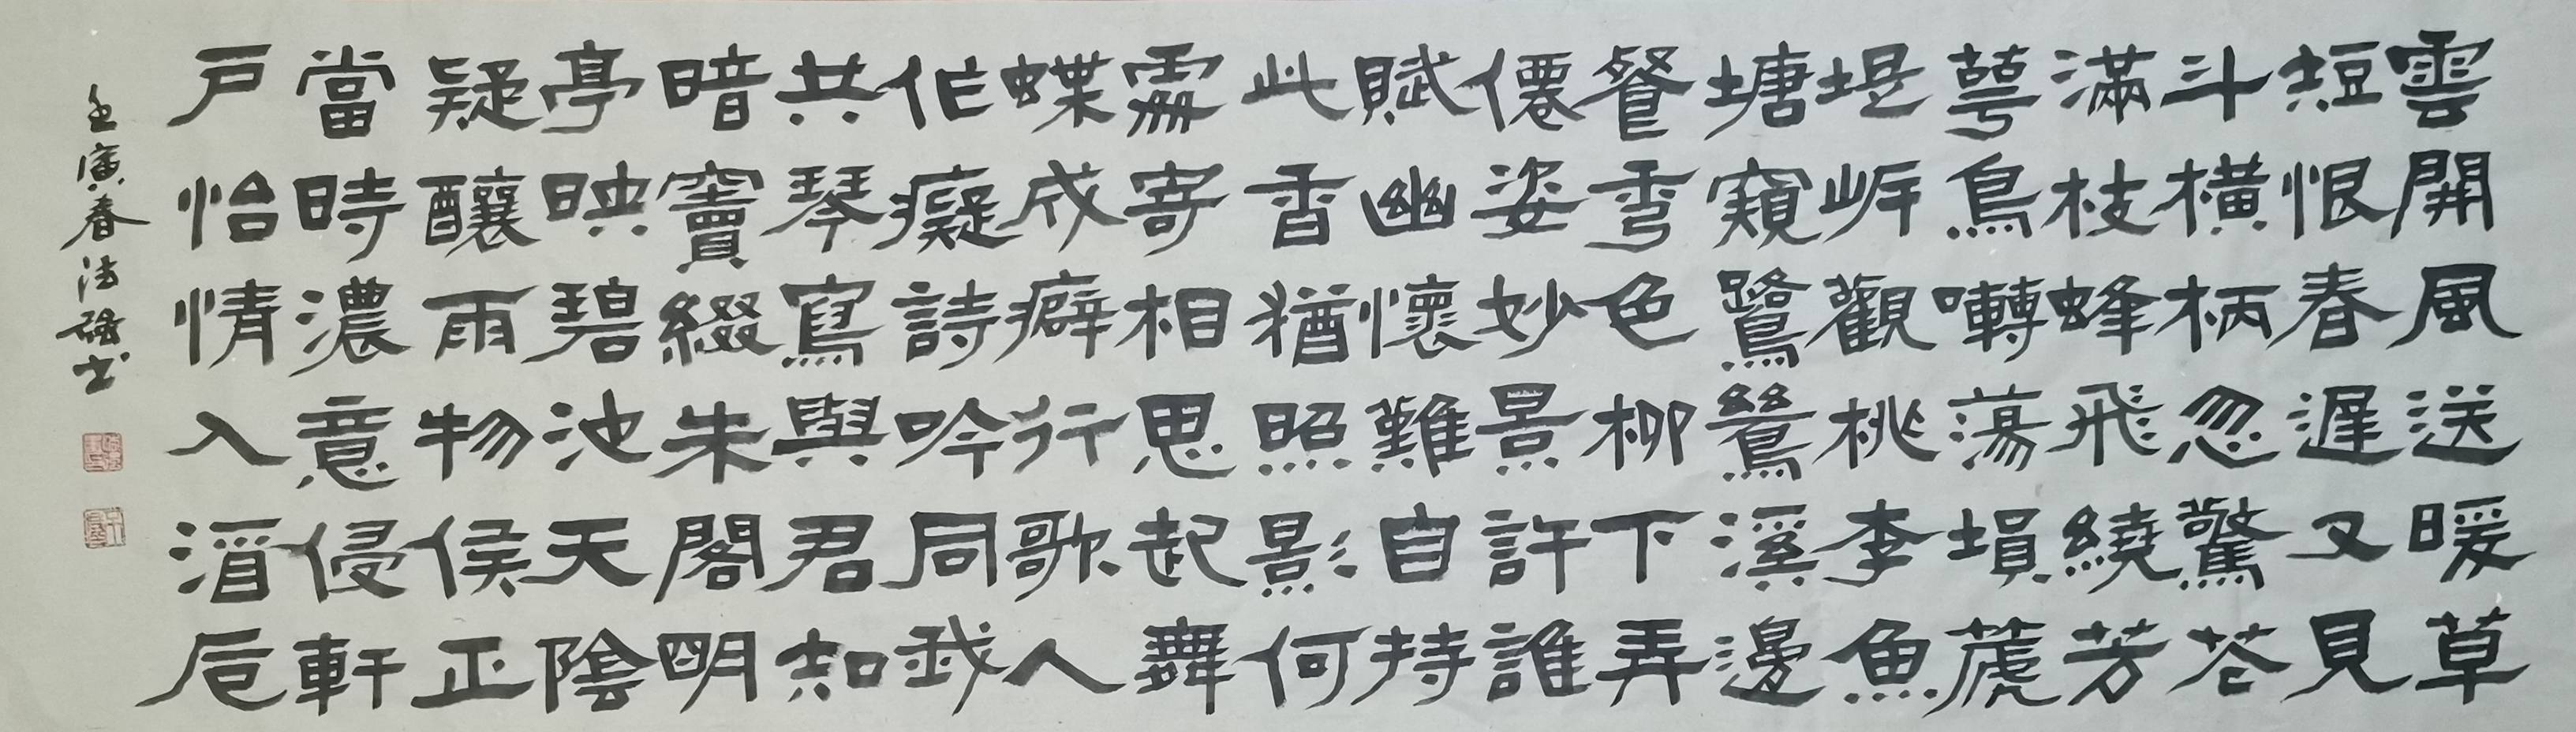 雲開風送暖草
短恨春遲又見
斗橫柄忽驚花
滿枝蜂飛繞芳
萼鳥囀蕩塤篪
堤岸觀桃李魚
塘窺鷺鷥溪邊
餐霞色柳下弄
僊姿妙景許誰
賦幽懷難自持
此香猶照影何
處寄相思起舞
蝶成癖行歌人
作癡詩吟同我
共琴寫與君知
暗竇綴朱閣明
亭映碧池天陰
疑釀雨物侯正
當時濃意侵軒
戶怡情入酒卮
壬寅春法強書